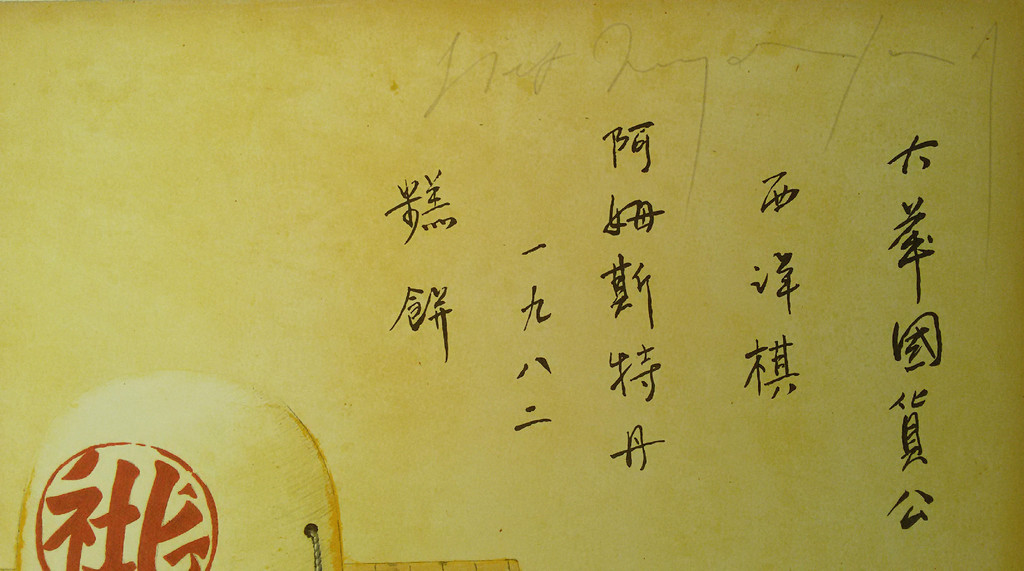 大華國貨公
西洋棋
阿姆斯特丹
一九八二
糕餅